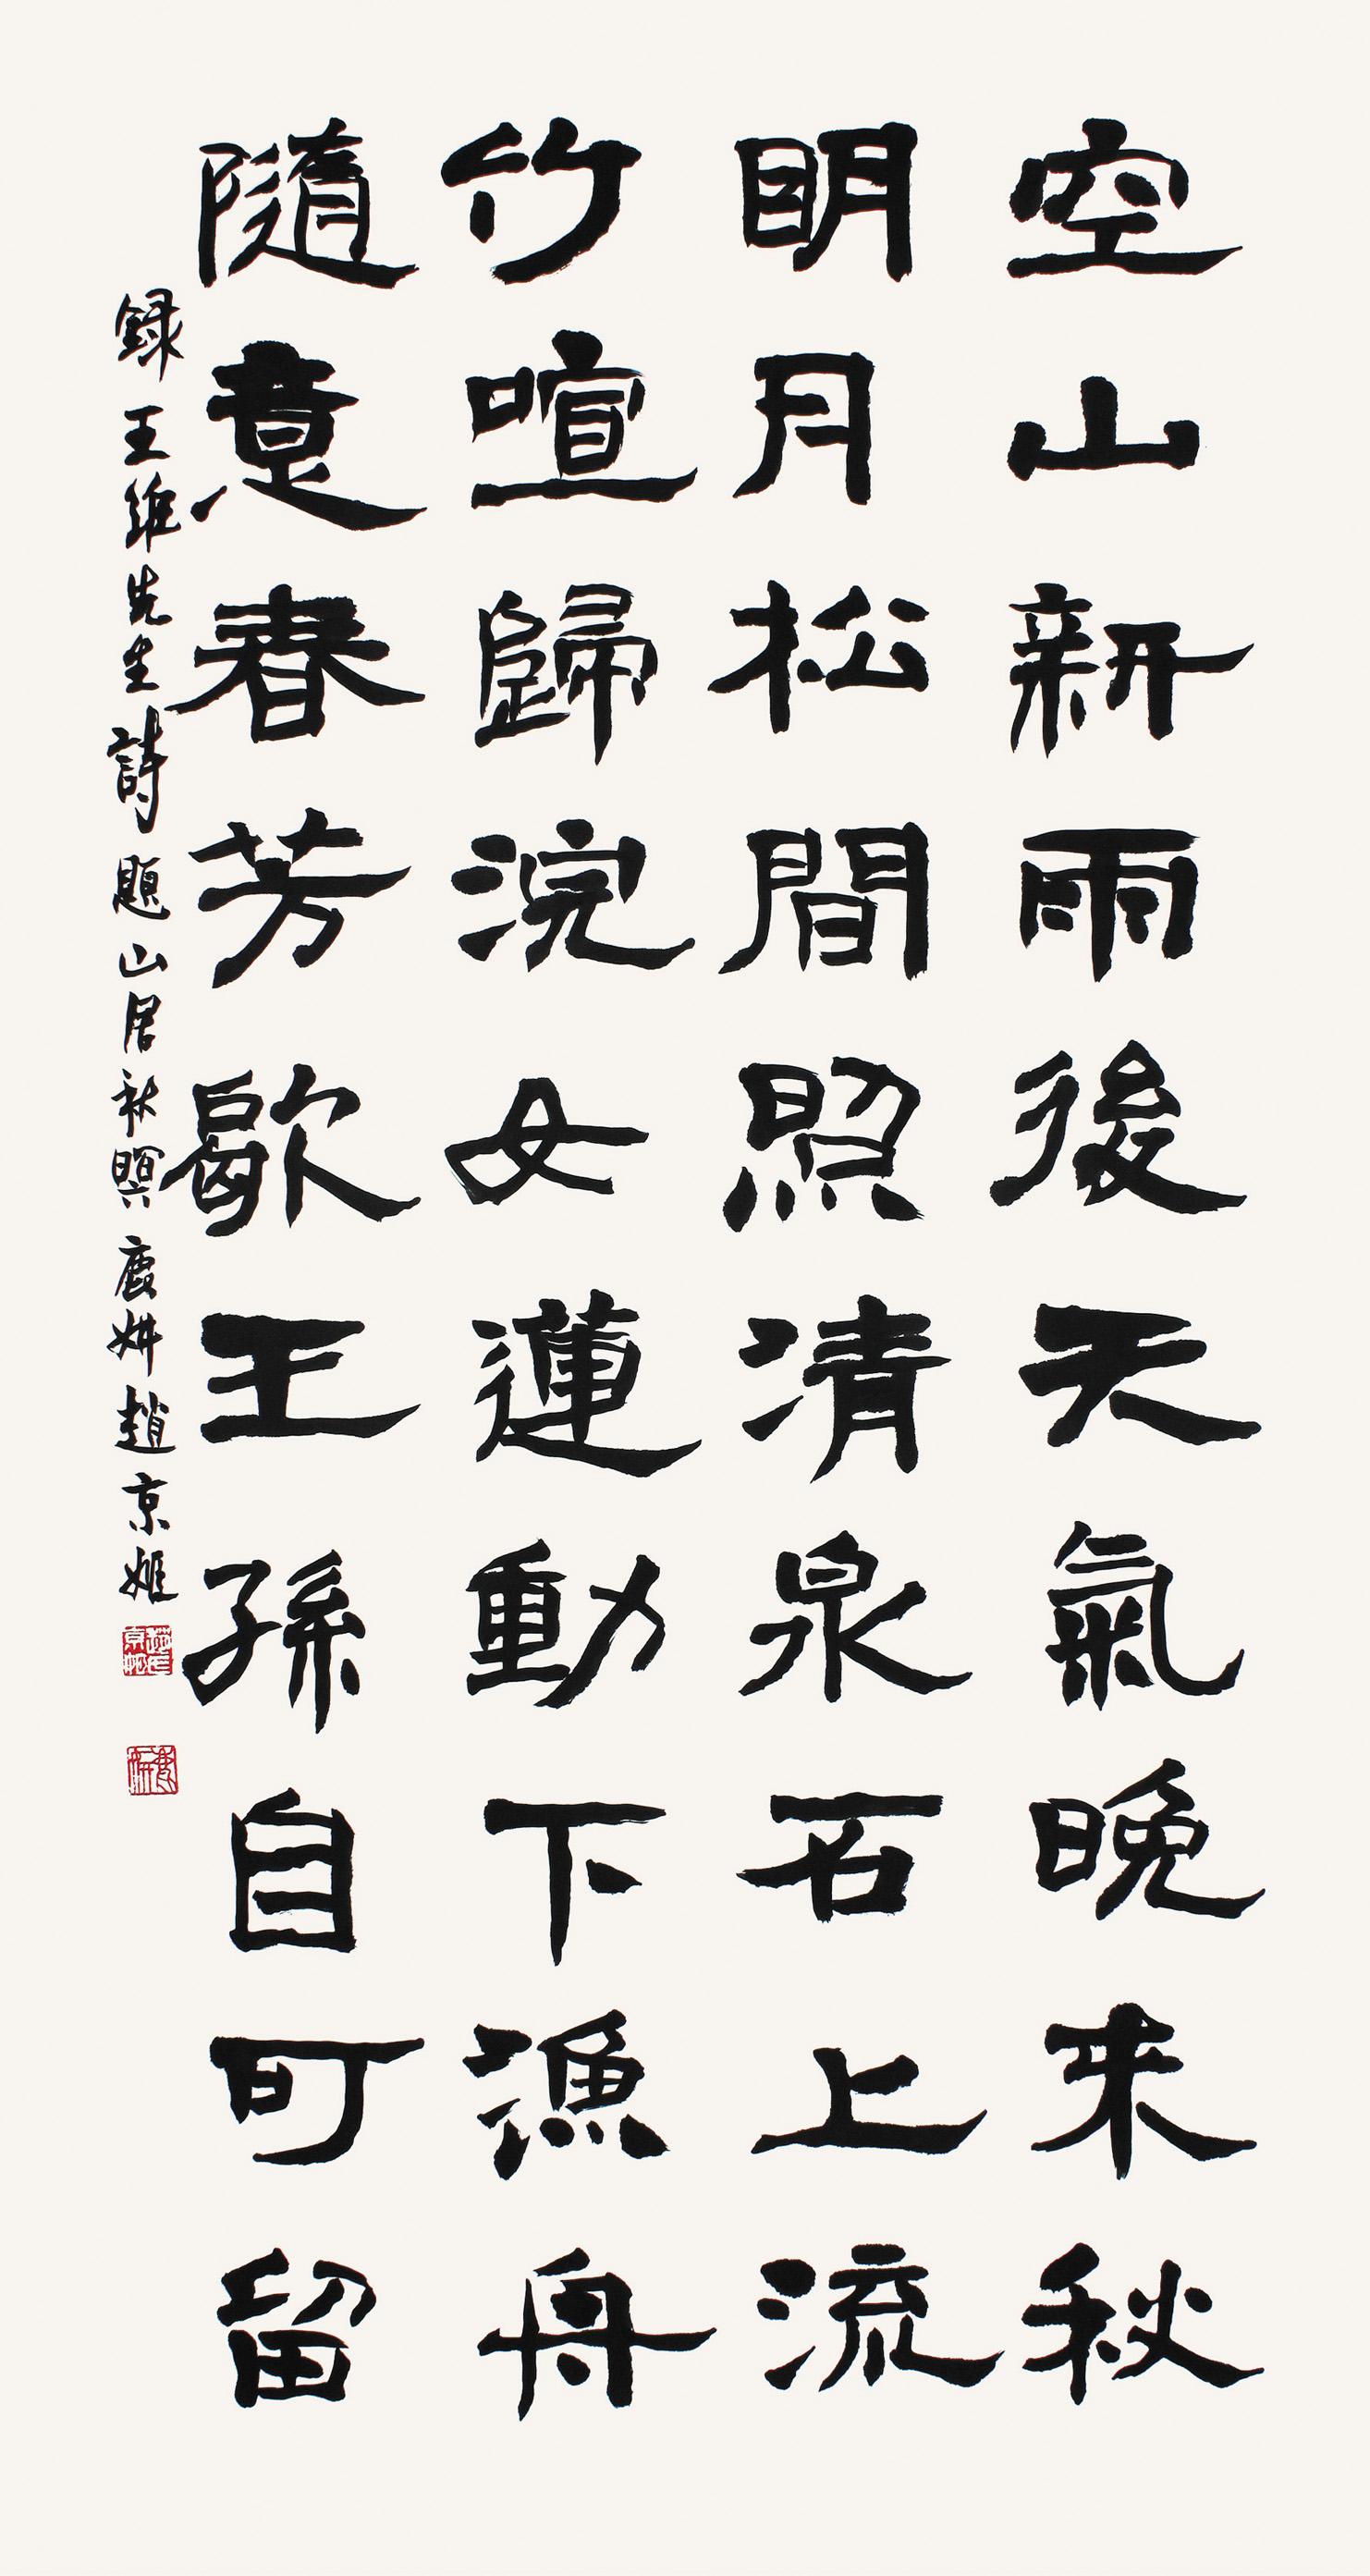 空山新雨後天氣晚來秋
明月松間照清泉石上流
竹喧歸浣女蓮動下漁舟
隨意春芳歇王孫自可留
録王維先生詩題山居秋暝鹿妌趙京姬